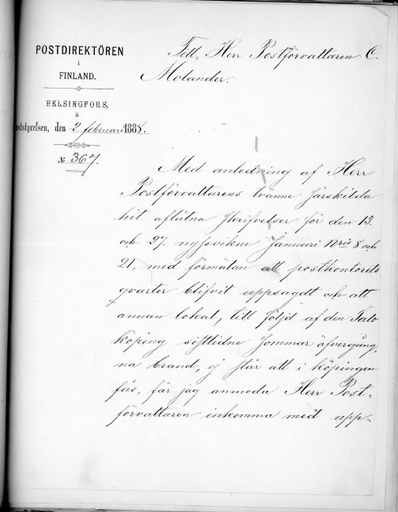 POSTDIREKTÖREN
i
FINLAND.
HELSINGFORS,
å
Poststyrelsen, den 2 februari 1888.
No 367.
Till Herr Postförvaltaren C.
Molander.
Med anledning af Herr
Postförvaltarens tvänne särskilda
hit aflåtna skrifvelser för den 13
och 27 nyssvikne Januari Nris 8 och
21, med förmälan att postkontorets
qvarter blifvit uppsagdt och att
annan lokal, till följd af den
köping sistlidne sommar öfvergång-
na brand, ej står att i köpingen
fås, får jag anmoda Herr Post-
förvaltaren inkomma med upp-